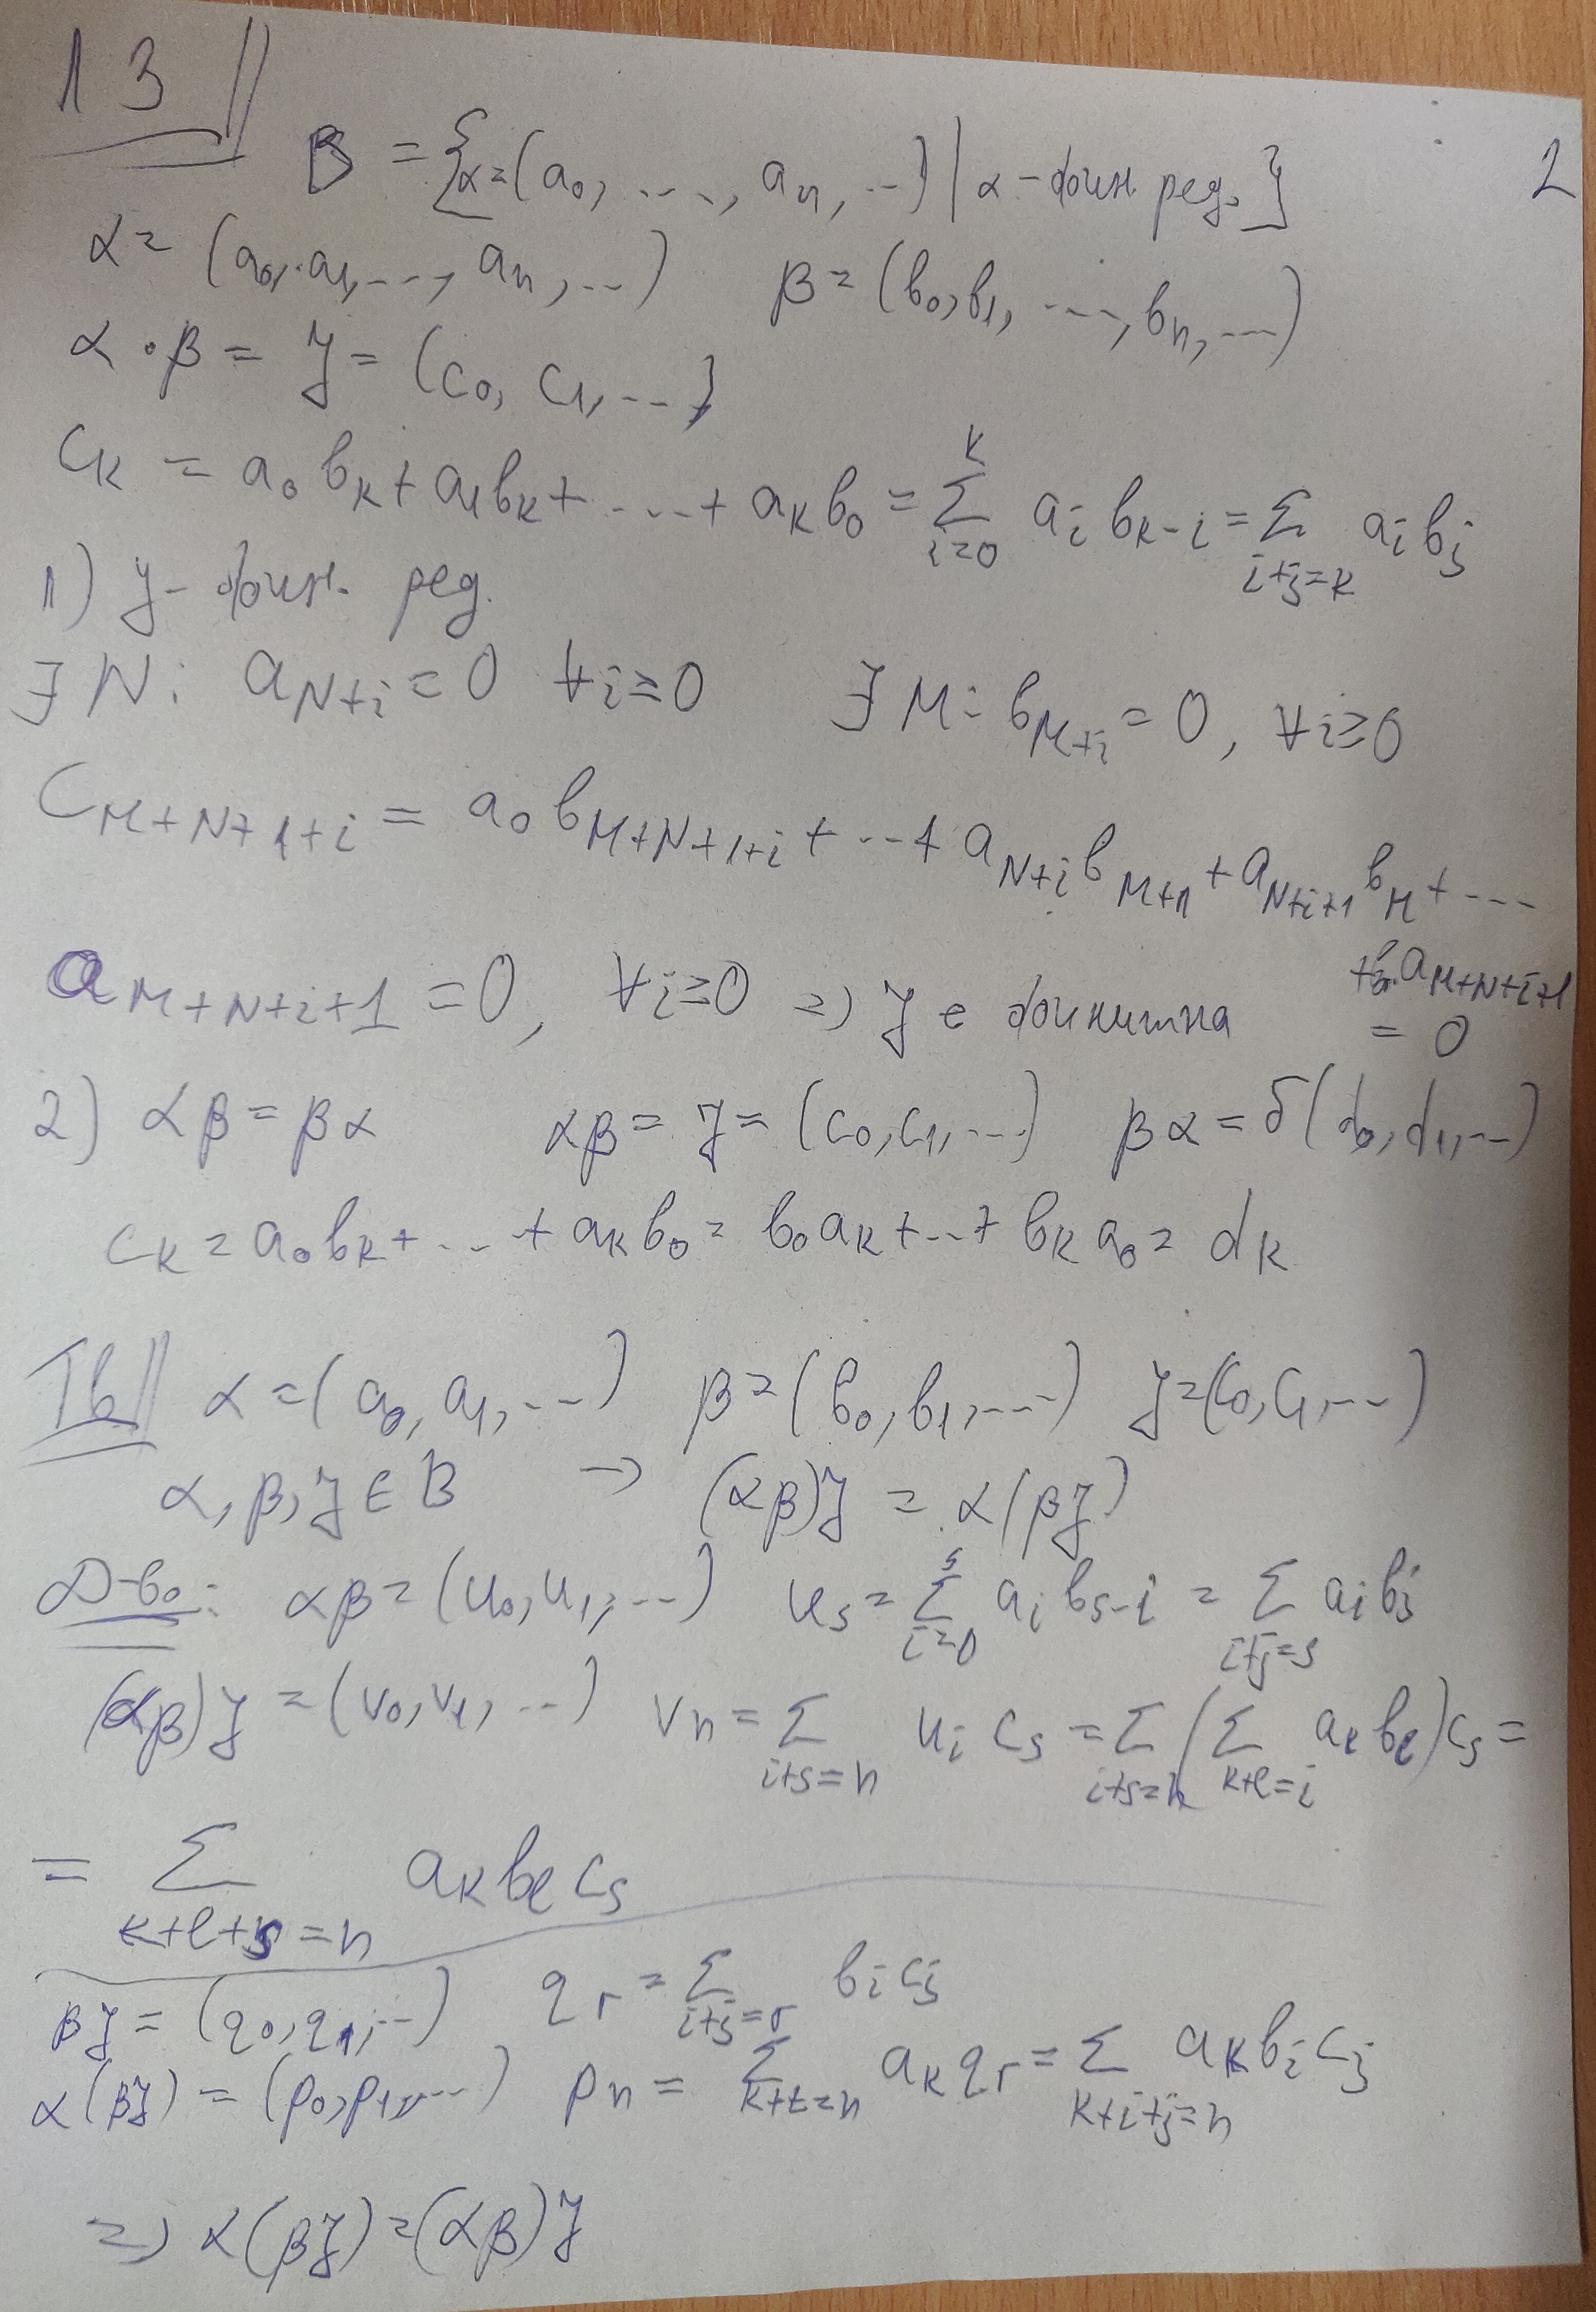 13
2
B = {α=(a₀, ..., aₙ, ...) | α - фин. ред.}
α = (a₀, a₁, ..., aₙ, ...) β = (b₀, b₁, ..., bₙ, ...)
α . β = γ = (c₀, c₁, ...)
cₖ = a₀bₖ + a₁bₖ + ... + aₖb₀ = Σ_{i=0}^{k} aᵢb_{k-i} = Σ_{i+j=k} aᵢbⱼ
1) γ - фин. ред.
∃ N: a_{N+i} = 0 ∀i≥0 ∃ M: b_{M+i} = 0, ∀i≥0
C_{M+N+1+i} = a₀b_{M+N+1+i} + ... + a_{N+i}b_{M+1} + a_{N+i+1}b_M + ...
+b₀a_{M+N+i+1} = 0
a_{M+N+i+1} = 0, ∀i≥0 => γ е финитна
2) αβ = βα αβ = γ = (c₀, c₁, ...) βα = δ(d₀, d₁, ...)
cₖ = a₀bₖ + ... + aₖb₀ = b₀aₖ + ... + bₖa₀ = dₖ
Тв α = (a₀, a₁, ...) β = (b₀, b₁, ...) γ = (c₀, c₁, ...)
α, β, γ ∈ B → (αβ)γ = α(βγ)
Д-во: αβ = (u₀, u₁, ...) uₛ = Σ_{i=0}^{s} aᵢb_{s-i} = Σ_{i+j=s} aᵢbⱼ
(αβ)γ = (v₀, v₁, ...) vₙ = Σ_{i+s=n} uᵢcₛ = Σ_{i+s=n} (Σ_{k+l=i} aₖbₗ)cₛ =
= Σ_{k+l+s=n} aₖbₗcₛ
βγ = (q₀, q₁, ...) qᵣ = Σ_{i+j=r} bᵢcⱼ
α(βγ) = (p₀, p₁, ...) pₙ = Σ_{k+r=n} aₖqᵣ = Σ_{k+i+j=n} aₖbᵢcⱼ
=> α(βγ) = (αβ)γ